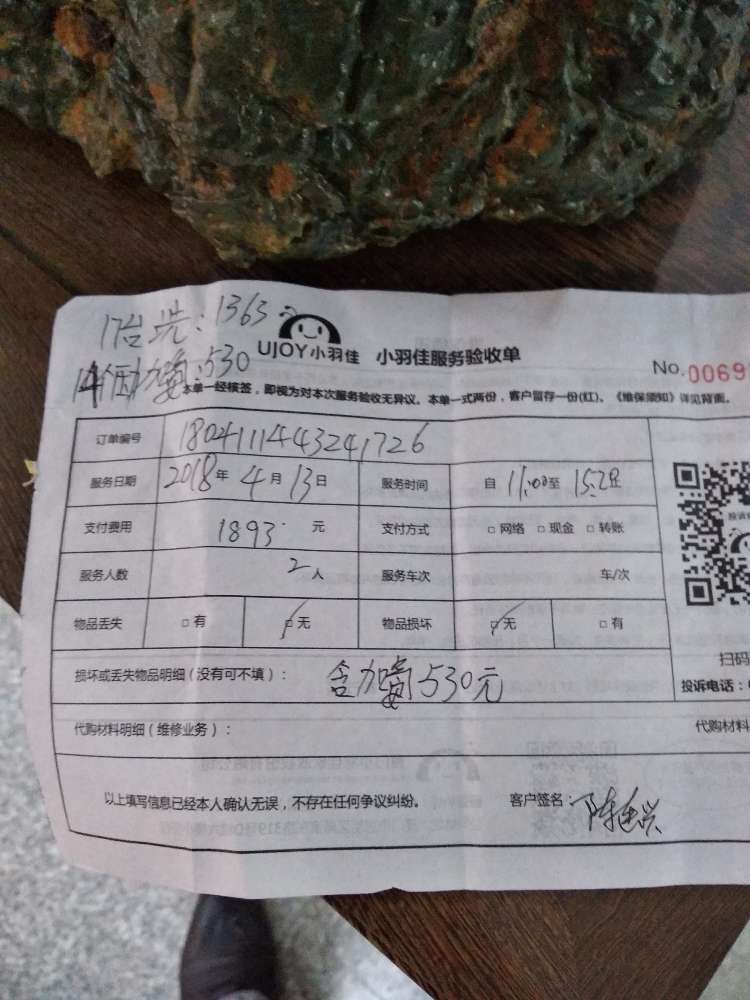 17台洗：1363
14个加氟：530
UJOY小羽佳 小羽佳服务验收单
No. 0069
本单一经核签，即视为对本次服务验收无异议。本单一式两份，客户留存一份(红)。《维保须知》详见背面。
订单编号 1804111443241726
服务日期 2018年4月13日 服务时间 自 11:00至
支付费用 1893. 元 支付方式 □网络 □现金 □转账
服务人数 2人 服务车次 车/次
物品丢失 □有 □无 物品损坏 □无 □有
损坏或丢失物品明细（没有可不填）： 含加氟530元
代购材料明细（维修业务）： 代购材料
扫码
投诉电话：
以上填写信息已经本人确认无误，不存在任何争议纠纷。 客户签名：